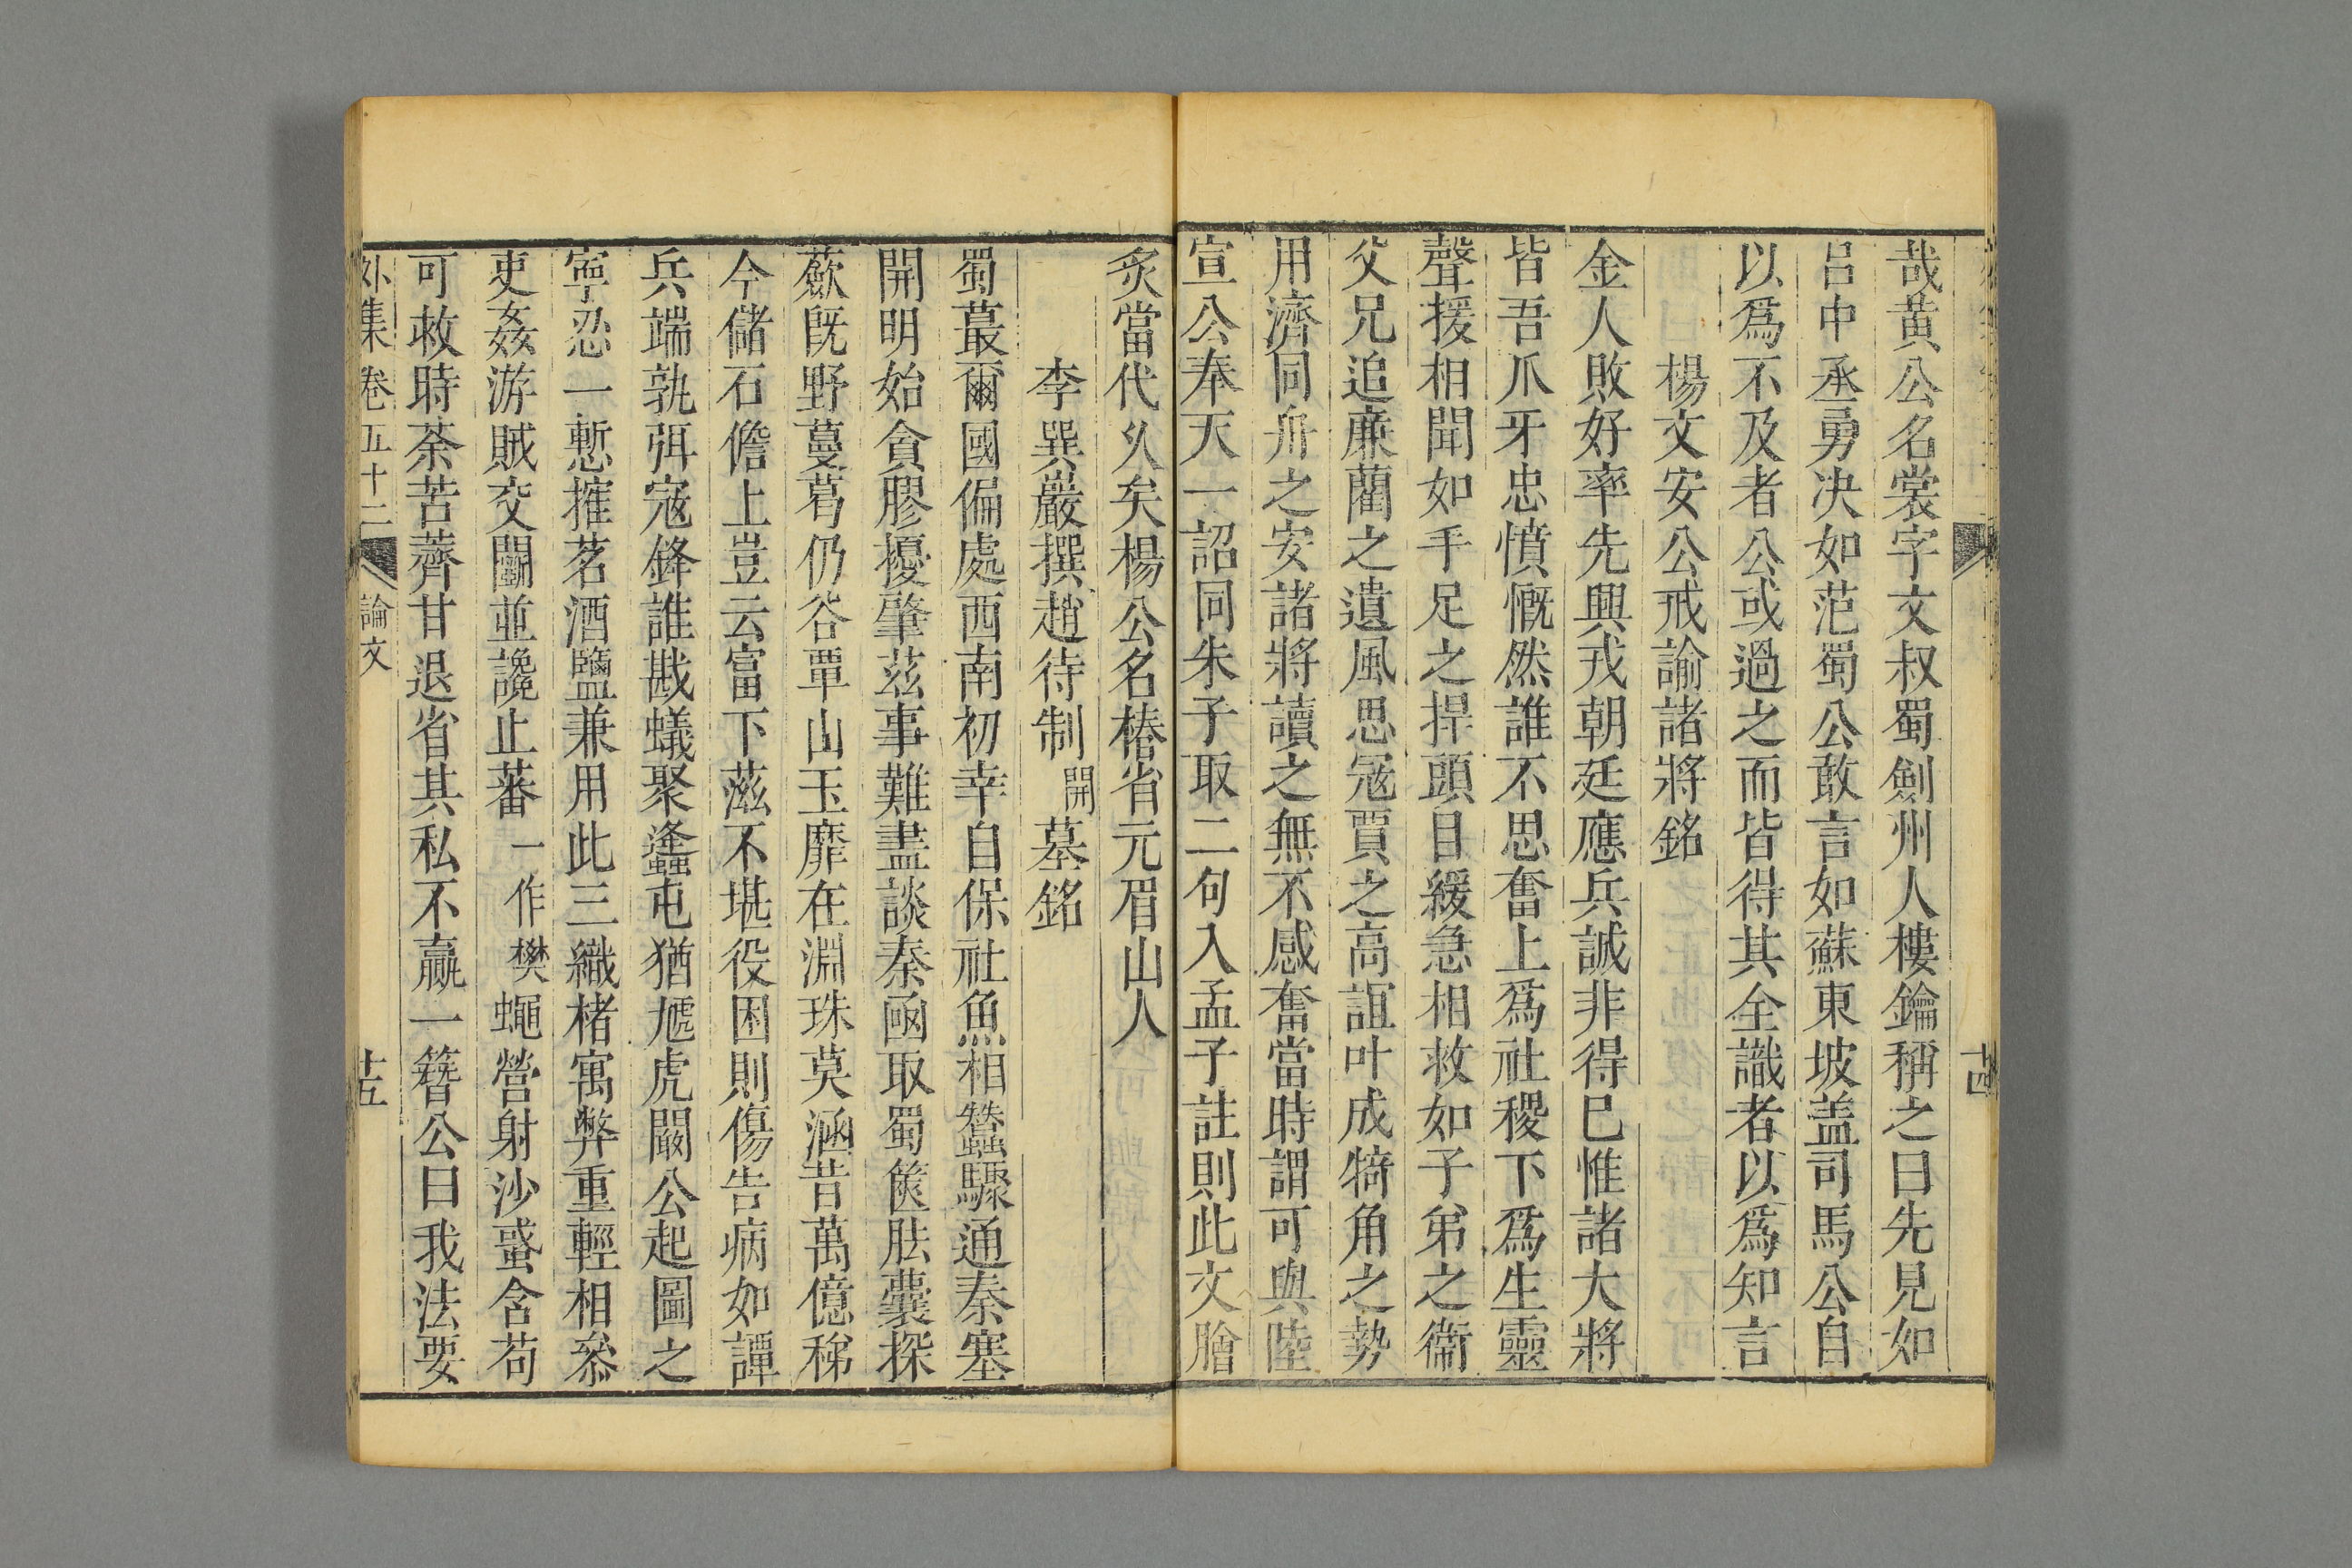 哉黄公名裳字文叔蜀劍州人樓鑰稱之曰先見如
呂中丞勇决如范蜀公敢言如蘇東坡盖司馬公自
以爲不及者公或過之而皆得其全識者以爲知言
楊文安公戒諭諸將銘
金人敗好率先興戎朝廷應兵誠非得已惟諸大將
皆吾爪牙忠憤慨然誰不思奮上爲社稷下爲生靈
聲援相聞如手足之捍頭目緩急相救如子弟之衞
父兄追廉藺之遺風思冦賈之高誼叶成犄角之勢
用濟同舟之安諸將讀之無不感奮當時謂可與陸
宣公奉天一詔同朱子取二句入孟子註則此文膾
十四
炙當代久矣楊公名椿省元眉山人
李巽巖撰趙待制開墓銘
蜀蕞爾國偏處西南初幸自保社魚相蠶驟通秦塞
開明始貪膠擾肇兹事難盡談秦凾取蜀篋胠囊探
蔌旣野蔓葛仍谷覃山玉靡在淵珠莫涵昔萬億稊
今儲石儋上豈云富下滋不堪役困則傷告病如譚
兵端孰弭寇鋒誰戡蟻聚蠭屯猶虓虎闞公起圖之
寧忍一慙搉茗酒鹽兼用此三織楮寓弊重輕相叅
吏姦游賊交鬭並讒止蕃一作樊蠅營射沙蜮含苟
可救時荼苦薺甘退省其私不贏一簪公曰我法要
外集卷五十二
論文
十五